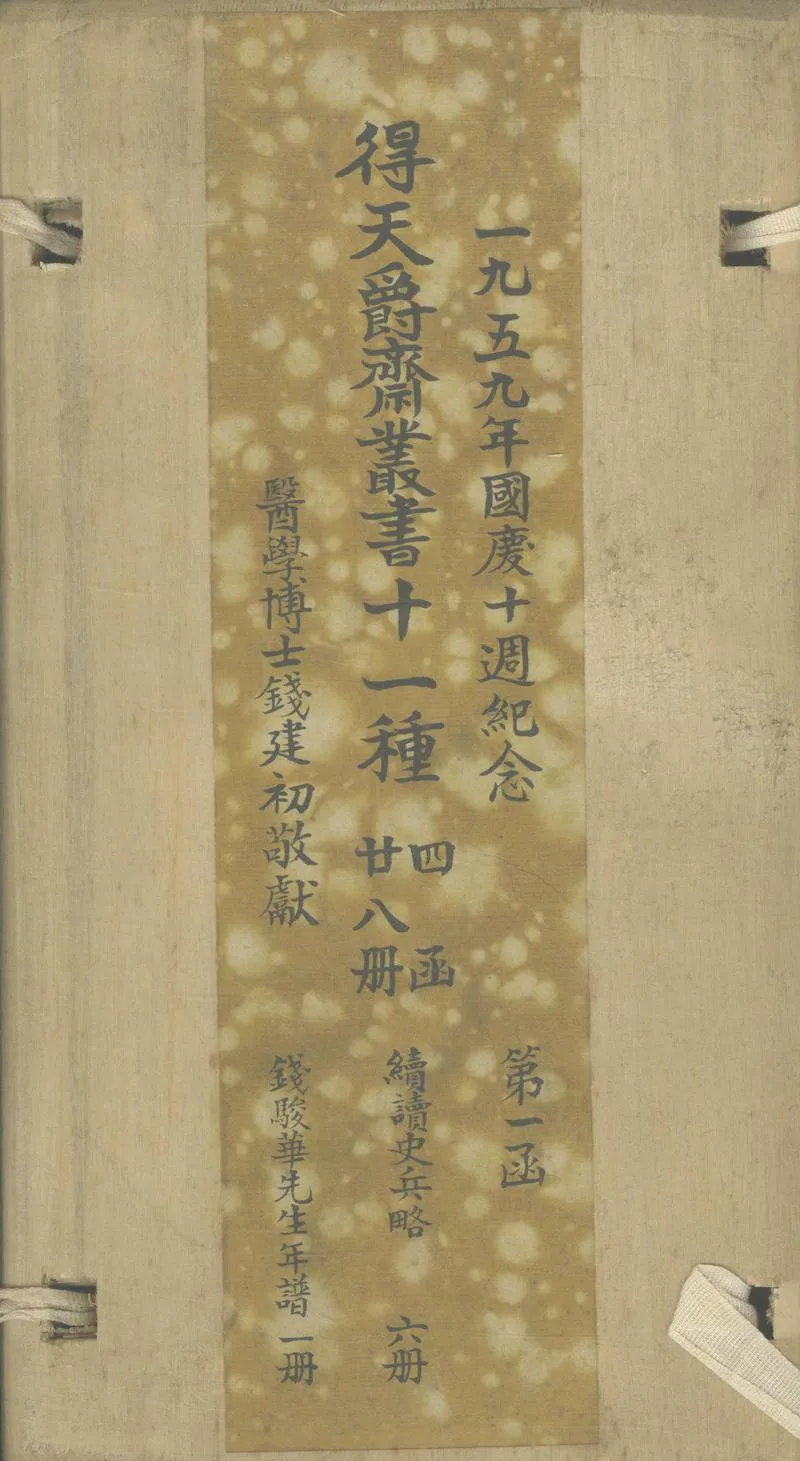 一九五九年國慶十週紀念
得天爵齋叢書十一種
四函
廿八册
醫學博士錢建初敬獻
第一函
續讀史兵略 六册
錢駿華先生年譜 一册